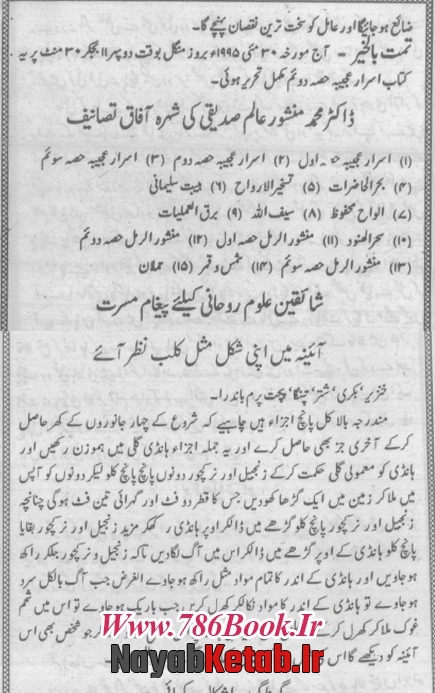 ضائع ہو جائیگا اور عامل کو سخت ترین نقصان پہنچے گا۔
تمت بالخیر - آج مورخہ ۳۰ مئی ۱۹۹۵ء بروز منگل بوقت دوپہر ۱۱ بجکر ۳۰ منٹ پر یہ
کتاب اسرار عجیبہ حصہ دوئم مکمل تحریر ہوئی۔
ڈاکٹر محمد منشور عالم صدیقی کی شہرہ آفاق تصانیف
(۱) اسرار عجیبہ حصہ اول (۲) اسرار عجیبہ حصہ دوم (۳) اسرار عجیبہ حصہ سوئم
(۴) بحر الحاضرات (۵) تسخیر الارواح (۶) ہیبت سلیمانی
(۷) الواح محفوظ (۸) سیف اللہ (۹) برق العملیات
(۱۰) سحر الہنود (۱۱) منشور الرمل حصہ اول (۱۲) منشور الرمل حصہ دوئم
(۱۳) منشور الرمل حصہ سوئم (۱۴) شمس و قمر (۱۵) حملان
شائقین علوم روحانی کیلئے پیغام مسرت
آئینہ میں اپنی شکل مثل کلب نظر آئے
خنزیر، بکری، شتر، چنگا، چکت پرم باندرا۔
مندرجہ بالا کل پانچ اجزاء ہیں چاہیے کہ شروع کے چہار جانوروں کے گھر حاصل
کرکے آخری جز بھی حاصل کرے اور یہ جملہ اجزاء ہانڈی گلی میں ہموزن رکھیں اور
ہانڈی کو معمولی گلی حکمت کرکے زنجبیل اور نرکچور دونوں پانچ پانچ کلو لیکر دونوں کو آپس
میں ملا کر زمین میں ایک گڑھا کھودیں جس کا قطر دو فٹ اور گہرائی تین فٹ ہو گی چنانچہ
زنجبیل اور نرکچور پانچ کلو گڑھے میں ڈالکر اوپر ہانڈی رکھکر مزید زنجبیل اور نرکچور بقایا
پانچ کلو ہانڈی کے اوپر گڑھے میں ڈالکر اس میں آگ لگادیں تاکہ زنجبیل و نرکچور جلکر راکھ
ہو جاویں اور ہانڈی کے اندر کا تمام مواد مثل راکھ ہو جاوے الغرض جب آگ بالکل سرد
ہو جاوے تو ہانڈی کے اندر کا مواد نکالکر کھرل کریں جب باریک ہو جاوے تو اس میں شحم
غوک ملا کر کھرل کر جو شخص بھی اس
آئینہ کو دیکھے گا اس
www.786Book.Ir
NayabKetab.Ir